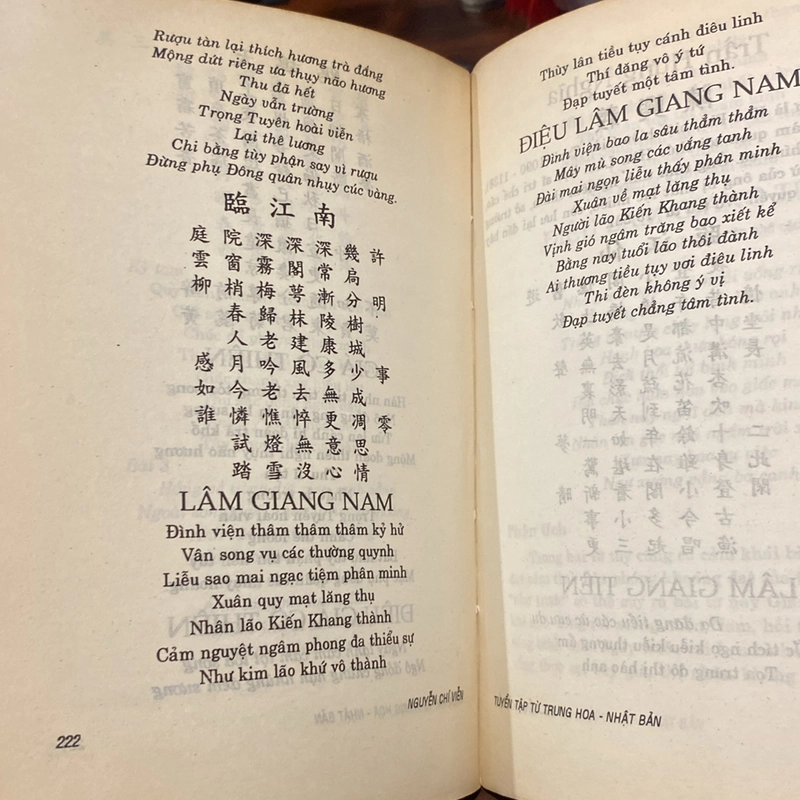 Rượu tàn lại thích hương trà đắng
Mộng dứt riêng ưa thụy não hương
Thu đã hết
Ngày vẫn trường
Trọng Tuyên hoài viễn
Lại thê lương
Chi bằng tùy phận say vì rượu
Đừng phụ Đông quân nhụy cúc vàng.
臨 江 南
庭院深深深幾許
雲窗霧閣常扃
柳梢梅萼漸分明
春歸秣陵樹
人老建康城
感月吟風多少事
如今老去無成
誰憐憔悴更凋零
試燈無意思
踏雪沒心情
LÂM GIANG NAM
Đình viện thâm thâm thâm kỷ hử
Vân song vụ các thường quynh
Liễu sao mai ngạc tiệm phân minh
Xuân quy mạt lăng thụ
Nhân lão Kiến Khang thành
Cảm nguyệt ngâm phong đa thiểu sự
Như kim lão khứ vô thành
NGUYỄN CHÍ VIỄN
222
Thùy lân tiều tụy cánh điêu linh
Thí đăng vô ý tứ
Đạp tuyết một tâm tình.
ĐIỆU LÂM GIANG NAM
Đình viện bao la sâu thẳm thẳm
Mây mù song các vắng tanh
Đài mai ngọn liễu thấy phân minh
Xuân về mạt lăng thụ
Người lão Kiến Khang thành
Vịnh gió ngâm trăng bao xiết kể
Bằng nay tuổi lão thôi đành
Ai thương tiều tụy vơi điêu linh
Thi đèn không ý vị
Đạp tuyết chẳng tâm tình.
TUYỂN TẬP TỪ TRUNG HOA - NHẬT BẢN